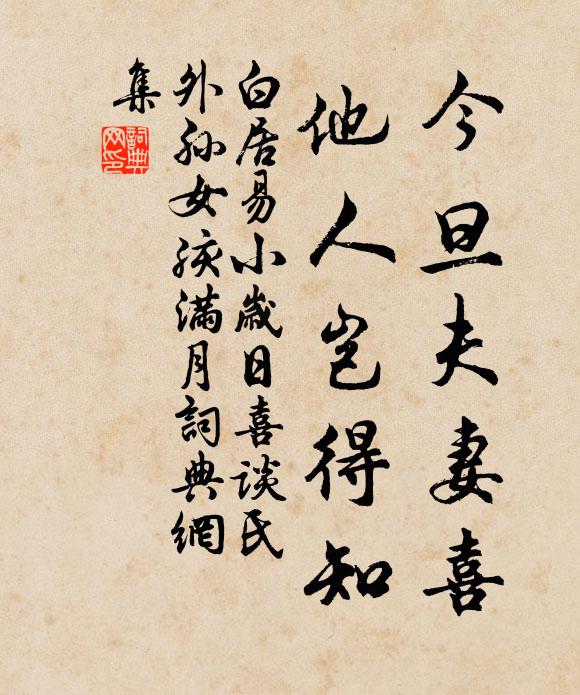 今旦夫妻喜
他人岂得知
白居易小歲日喜談氏
外孙女孩满月詞典網
集
詞典
网印